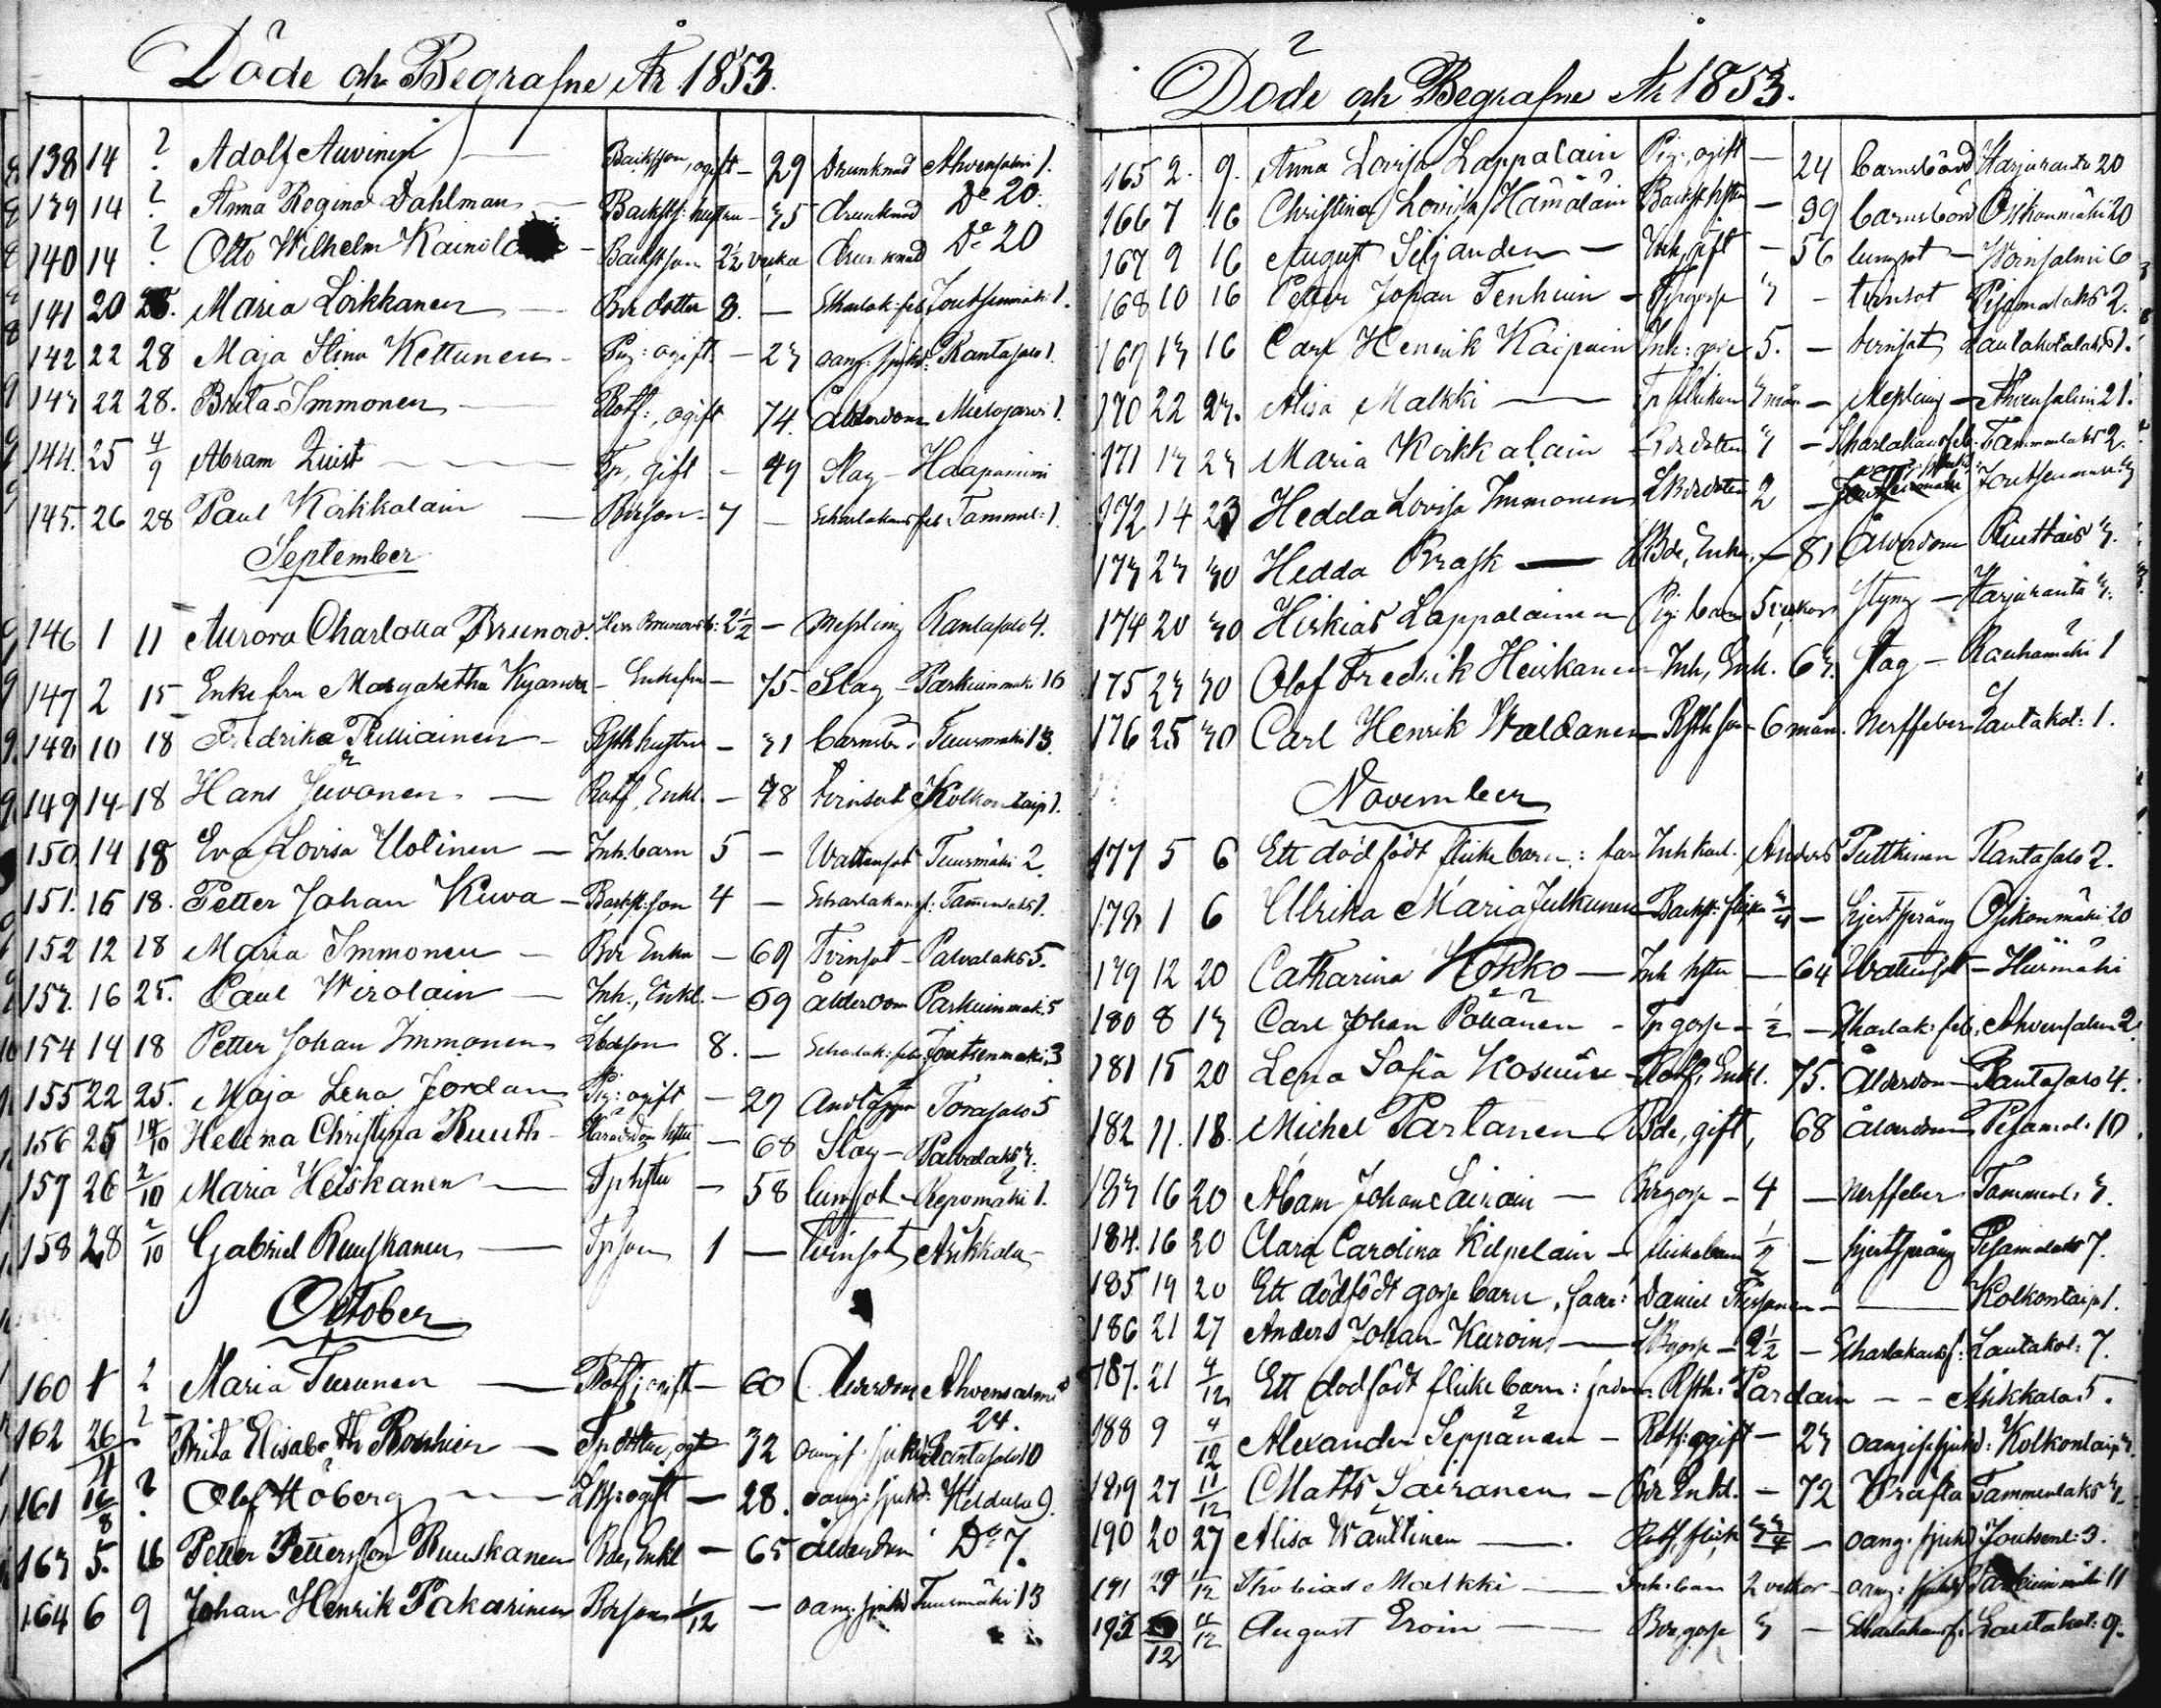 Döde och Begrafne År 1853.
138 14 ? Adolf Auvinen Backstson, ogift - 29 drunknad Ahvensalmi 1.
139 14 ? Anna Regina Dahlman Backst: hustru - 35 drunknad Do 20.
140 14 ? Otto Wilhelm Backstson 2½ veckor drunknad Do 20
141 20 28. Maria Loikkanen Bdr dotter 8. - Scharlak: feb Joutsenmäki 1.
142 22 28 Maja Stina Kettunen - Pig: ogift - 23 oang: sjukd: Rantasalo 1.
143 22 28. Brita Immonen Rotf:, ogift 74. Ålderdom Mielojärvi 1.
144. 25 4/9 Abram Quist Tp, gift - 49 Slag - Haapaniemi
145. 26 28 Paul Koikkalain Bdrson - 7 - Scharlakansfeb Tamml: 1.
September
146 1 11 Aurora Charlotta Brunow. 2½ - Messling Rantasalo 4.
147 2 15 Enkefru Margaretha Kyander - Enkefru - 75 - Slag - Parkuinmäki 16
148 10 18 Fredrika Pulliainen - hustru - 31 barnsb. Tuusmäki 13.
149 14 18 Hans Juvonen - Rotf, Enkl. - 48 tvinsot Kolkontaip 1.
150. 14 18 Eva Lovisa Uotinen - Inh. barn 5 - Wattensot Tuusmäki 2.
151. 16 18. Petter Johan Kuva - Backst: son 4 - Scharlakansf: Tammenlaks 1.
152 12 18 Maria Immonen - Bdr Enka - 69 Tvinsot - Palvalaks 5.
153. 16 25. Paul Wirolain - Inh., Enkl. - 69 ålderdom Parkuinmäki 5
154 14 18 Petter Johan Immonen Lbdson 8. - Scharlak: feb: Joutsenmäki 3
155 22 25. Maja Lena Jordan Pig: ogift - 29 Andtäppa Torasalo 5
156 25 14/10 Helena Christina Ruuth - hstu - 68 Slag - Palvalaks 3.
157 26 2/10 Maria Heiskanen - Tp hstu - 58 lungsot - Repomäki 1.
158 28 2/10 Gabriel Ruuskanen - Tpson 1 - tvinsot Aikkala -
October
160 1 ? Maria Turunen - Rotf; ogift - 60 Ålderdom Ahvensalmi
24.
162 26/11 ? Brita Elisabeth - Tp dotter, ogt 32 oangif. sjukd: Rantasalo 10
161 16/8 ? Olof Höberg - ogift - 28. oang: sjukd: 9.
163 5. 16 Petter Pettersson Ruuskanen Bde, Enkl - 65 ålderdom Do 7.
164 6 9 Johan Henrik Pakarinen Bdrson 1/12 - oang. sjukd Tuusmäki 13
Döde och Begrafne År 1853.
165 2. 9. Anna Lovisa Lappalain Pig:, ogift - 24 barnsbörd Harjuranta 20
166 7 16 Christina Lovisa Hämäläin Backst hstu - 39 barnsbörd Osikonmäki 20
167 9 16 August Siljanden - Inh, gift - 56 lungsot - Woinsalmi 6
168 10 16 Petter Johan Tenhuin - Tp gosse 3 - tvinsot Pesamalaks 2.
169 13 16 Carl Henrik Kaipain Inh: gosse 5. - tvinsot Lautakotalaks 1.
170 22 23. Alisa Malkki - Tp flickan 3 mån - Messling - Ahvensalmi 21.
171 13 23 Maria Koikkalain Bdr dotter 7 - Scharlakansfeb. Tammenlaks 2.
172 14 23 Hedda Lovisa Immonen LBdrdotter 2 - Joutsenmäki 3
173 23 30 Hedda Brask - Bde, Enka. - 81 Ålderdom 3.
174 20 30 Hiskias Lappalainen Pig: barn 5 veckor Styng - Harjuranta 3.
175 23 30 Olof Fredrik Heiskanen Inh, Enk. 63. slag - Rauhamäki 1
176 25 30 Carl Henrik Waldanen - 6 mån. Nerffeber Lautakot: 1.
November
177 5 6 Ett död född flicke barn: far Inh karl. Anders Putkinen Rantasalo 2.
178 1 6 Ulrika Maria Julkunen Backst: flicka - hjertsprång Osikonmäki 20
179 12 20 Catharina Kokko - Inh hstu - 64 Wattensot - Hiismäki
180 8 13 Carl Johan Pöllänen - Tp gosse - ½ - Scharlak: feb. Ahvensalmi 2.
181 15 20 Lena Sofia Kosunen - Rotf, Enkl. 75. Ålderdom Rantasalo 4.
182 11. 18. Michel Partanen Bde, gift, 68 ålderdom Pesamal. 10
183 16 20 Abam Johan Sairain - Bdrgosse - 4 - Nerffeber Tammenl. 3.
184. 16 20 Clara Carolina Kilpelain - flickebarn ½ - hjertsprång Pesamalaks 7.
185 19 20 Ett dödfödt gosse barn, fader: Daniel - Kolkontaip 1.
186 21 27 Anders Johan Kuroin - gosse - 2½ - Scharlakansf: Lautakot: 7.
187. 21 4/12 Ett dödfödt flicke barn: fadren Pardain - - Aikkala 5.
188 9 4/12 Alexander Seppänen - Rotf: ogift - 23 oangif sjukd: Kolkontaip 3.
189 27 11/12 Matts Sairanen - Bdr Enkl. - 72 Kräfta Tammenlaks 3.
190 20 27 Alisa Wänttinen - Rotf, flick 3¾ - oang. sjukd Joutsenl: 3.
191 29 11/12 Thobias Malkki - Inh: barn 2 veckor - oang: sjukd Parkuinmäki 11
192 12 11/12 August Eroin - Bdr, gosse 3 - Scharlakansf. Lautakot: 9.